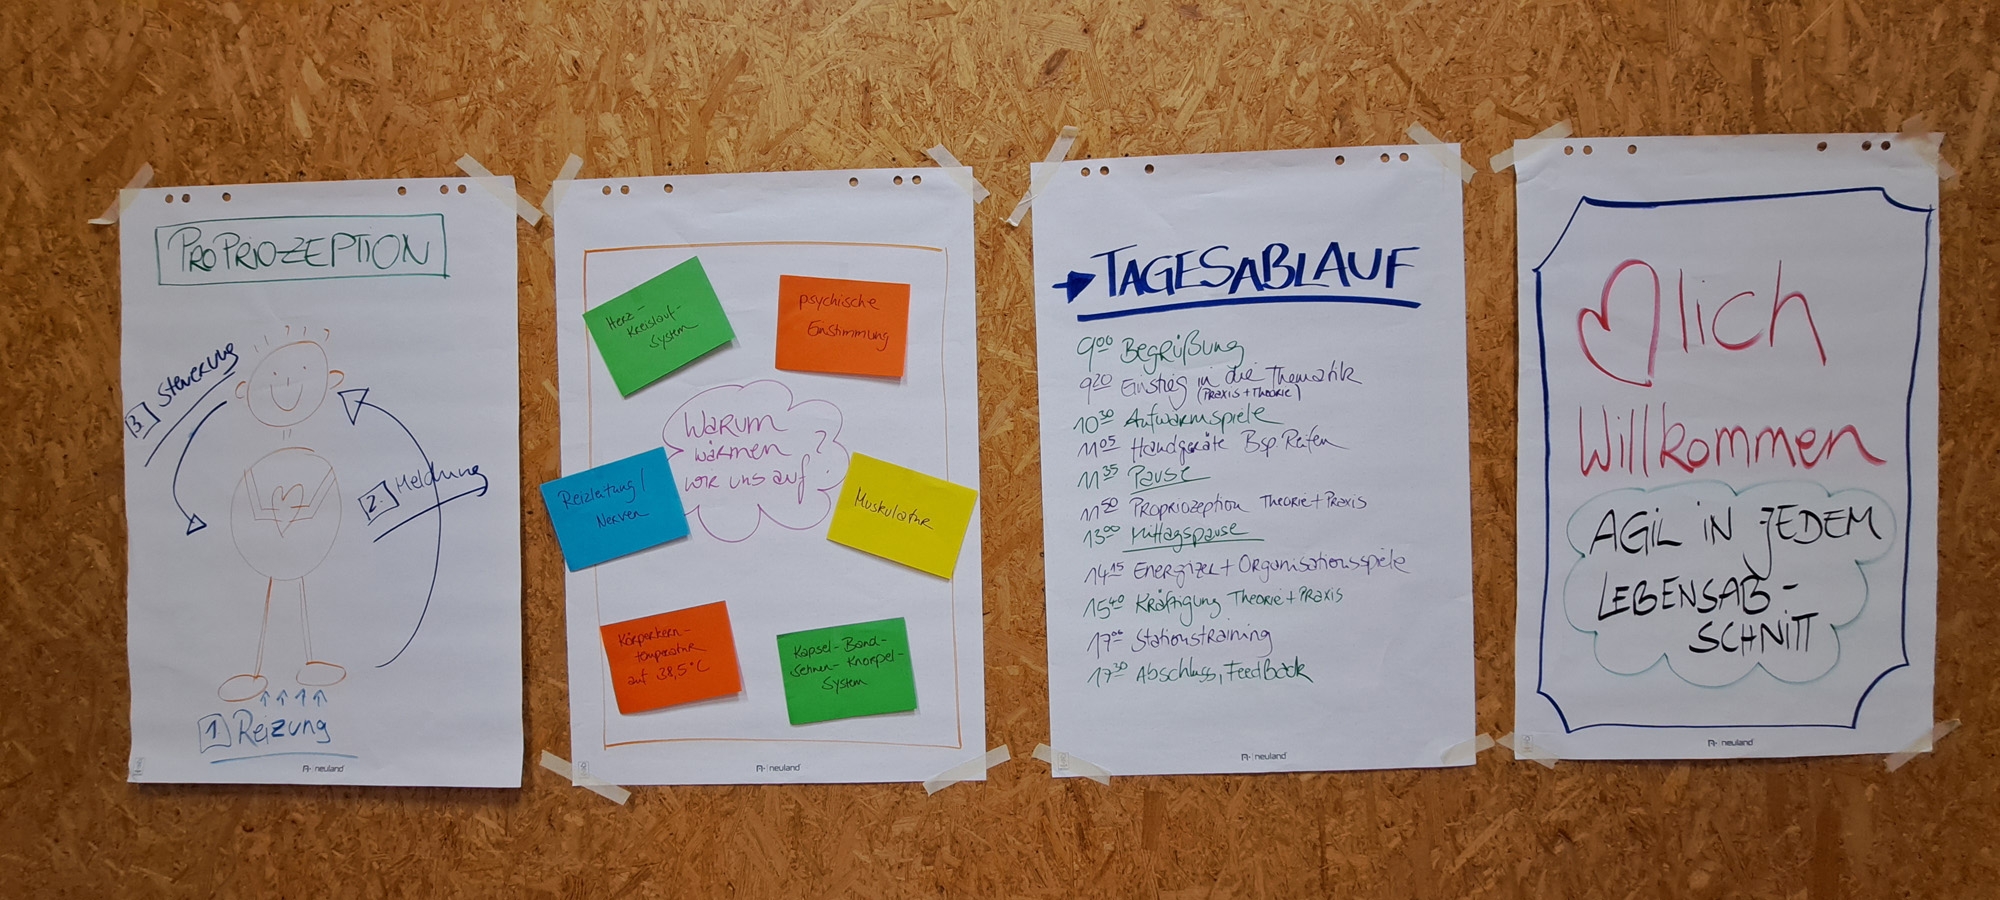 PROPRIOZEPTION
3. Steuerung
2. Meldung
1. Reizung
neuland
Herz-
Kreislauf-
System
psychische
Einstimmung
Warum
wärmen
wir uns auf?
Reizleitung/
Nerven
Muskulatur
Körperkern-
temperatur
auf 38,5°C
Kapsel-Band-
Sehnen-Knorpel-
System
neuland
TAGESABLAUF
9⁰⁰ Begrüßung
9²⁰ Einstieg in die Thematik
(Praxis+Theorie)
10³⁰ Aufwärmspiele
11⁰⁵ Handgeräte Bsp. Reifen
11³⁵ Pause
11⁵⁰ Propriozeption Theorie+Praxis
13⁰⁰ Mittagspause
14¹⁵ Energizer+Organisationsspiele
15⁴⁰ Kräftigung Theorie+Praxis
17⁰⁰ Stationstraining
17³⁰ Abschluss, Feedback
neuland
lich
Willkommen
AGIL IN JEDEM
LEBENSAB-
SCHNITT
neuland